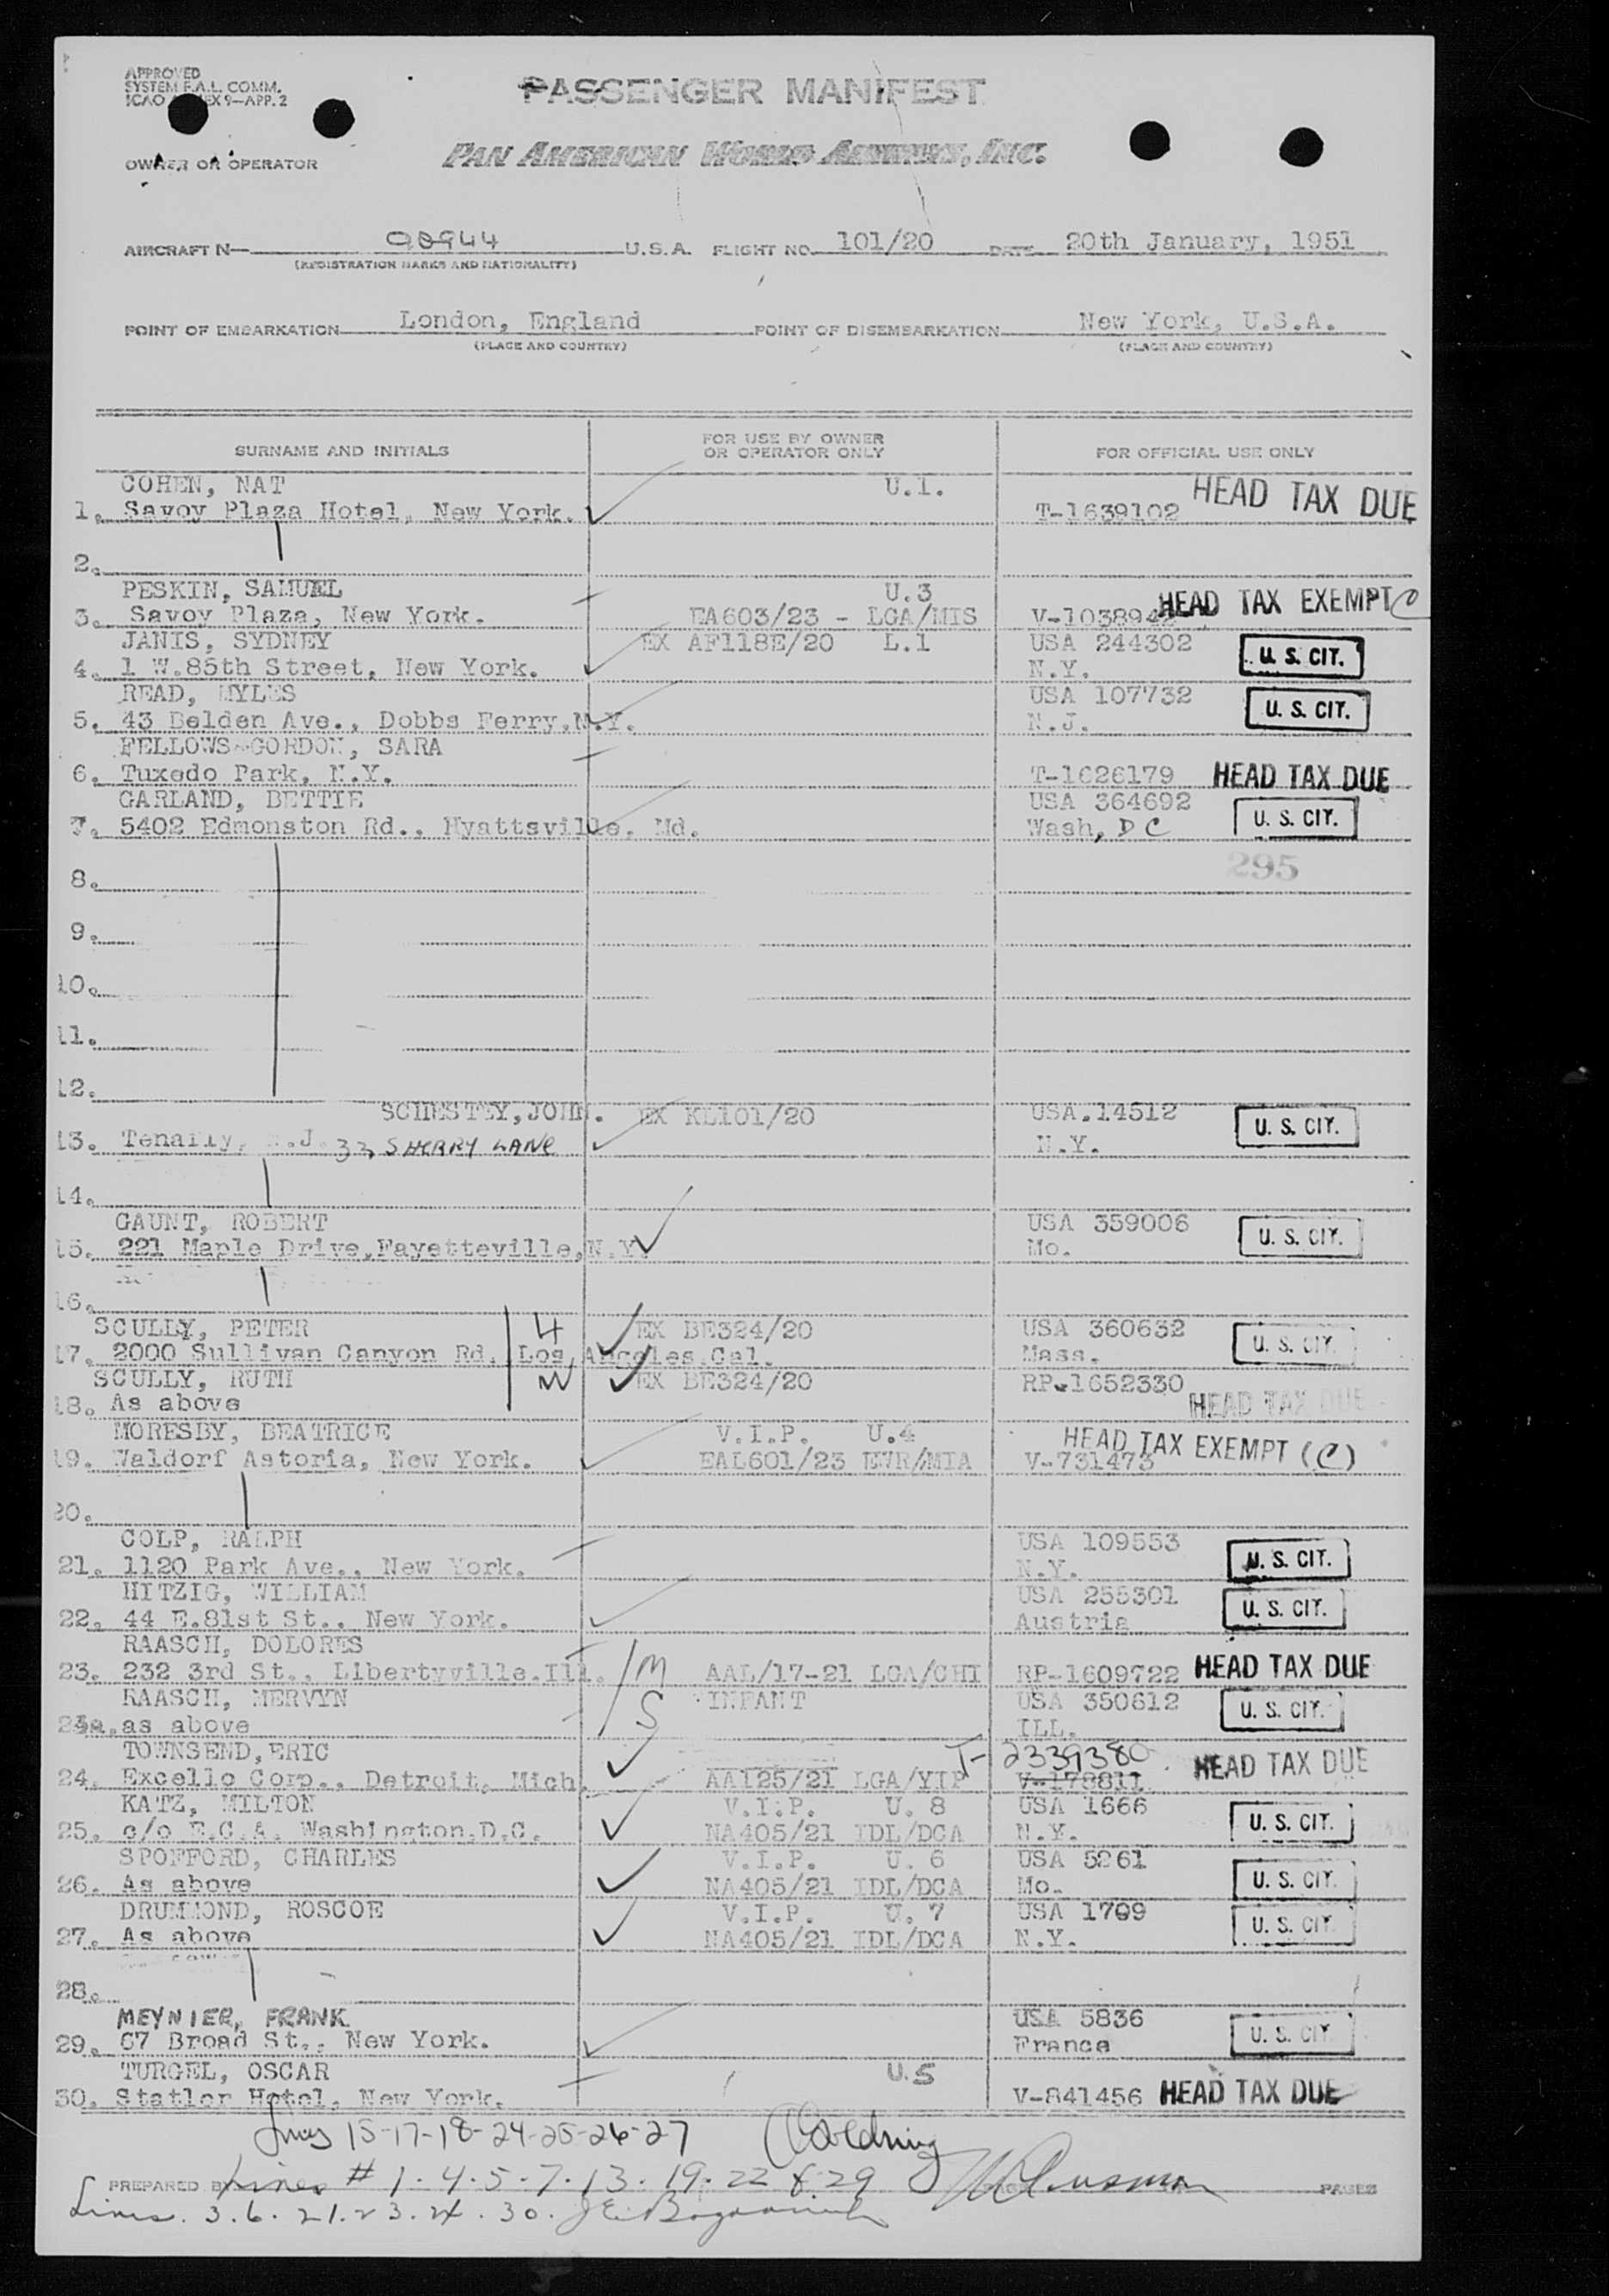 APPROVED
SYSTEM F.A.L. COMM.
ICAO ANNEX 9—APP. 2
PASSENGER MANIFEST
OWNER OR OPERATOR PAN AMERICAN WORLD AIRWAYS, INC.
AIRCRAFT N— U.S.A. FLIGHT NO. 101/20 DATE 20th January, 1951
(REGISTRATION MARKS AND NATIONALITY)
POINT OF EMBARKATION London, England POINT OF DISEMBARKATION New York, U.S.A.
(PLACE AND COUNTRY) (PLACE AND COUNTRY)
SURNAME AND INITIALS FOR USE BY OWNER OR OPERATOR ONLY FOR OFFICIAL USE ONLY
COHEN, NAT U.1. HEAD TAX DUE
1. Savoy Plaza Hotel, New York. T-1639102
2.
PESKIN, SAMUEL U.3 HEAD TAX EXEMPT C
3. Savoy Plaza, New York. EA603/23 - LGA/MIS
JANIS, SYDNEY EX AF118E/20 L.1 USA 244302 U. S. CIT.
4. 1 W.85th Street, New York. N.Y.
READ, MYLES USA 107732 U. S. CIT.
5. 43 Belden Ave., Dobbs Ferry,N.Y. N.J.
FELLOWS-GORDON, SARA
6. Tuxedo Park, N.Y. T-1626179 HEAD TAX DUE
GARLAND, BETTIE USA 364692 U. S. CIT.
7. 5402 Edmonston Rd., Hyattsville, Md. Wash, D C
295
8.
9.
10.
11.
12.
JOHN. EX KL101/20 USA.14512 U. S. CIT.
13. Tenafly, N.J. 32 SHERRY LANE N.Y.
14.
GAUNT, ROBERT USA 359006 U. S. CIT.
15. 221 Maple Drive,Fayetteville,N.Y. Mo.
16.
SCULLY, PETER 4 EX BE324/20 USA 360632 U. S. CIT.
17. 2000 Sullivan Canyon Rd. Los Angeles.Cal. Mass.
SCULLY, RUTH W EX BE324/20 RP-1652330 HEAD TAX DUE
18. As above
MORESBY, BEATRICE V.I.P. U.4 HEAD TAX EXEMPT (C)
19. Waldorf Astoria, New York. EAL601/23 EWR/MIA V-731473
20.
COLP, RALPH USA 109553 U. S. CIT.
21. 1120 Park Ave., New York. N.Y.
HITZIG, WILLIAM USA 255301 U. S. CIT.
22. 44 E.81st St., New York. Austria
RAASCH, DOLORES M
23. 232 3rd St., Libertyville.Ill. AAL/17-21 LGA/CHI RP-1609722 HEAD TAX DUE
RAASCH, MERVYN S INFANT USA 350612 U. S. CIT.
23a. as above ILL.
TOWNSEND,ERIC T-2339380 HEAD TAX DUE
24. Excello Corp., Detroit, Mich. AA125/21 LGA/YIP V-178811
KATZ, MILTON V.I.P. U. 8 USA 1666 U. S. CIT.
25. c/o E.C.A. Washington.D.C. NA405/21 IDL/DCA N.Y.
SPOFFORD, CHARLES V.I.P. U. 6 USA 5261 U. S. CIT.
26. As above NA405/21 IDL/DCA Mo.
DRUMMOND, ROSCOE V.I.P. U. 7 USA 1709 U. S. CIT.
27. As above NA405/21 IDL/DCA N.Y.
28.
MEYNIER, FRANK USA 5836 U. S. CIT.
29. 67 Broad St., New York. France
TURGEL, OSCAR U.5
30. Statler Hotel, New York. V-841456 HEAD TAX DUE
Lines 15-17-18-24-25-26-27
PREPARED BY Lines # 1-4-5-7-13-19-22 & 29 PAGES
Lines. 3.6.21.23.24.30.